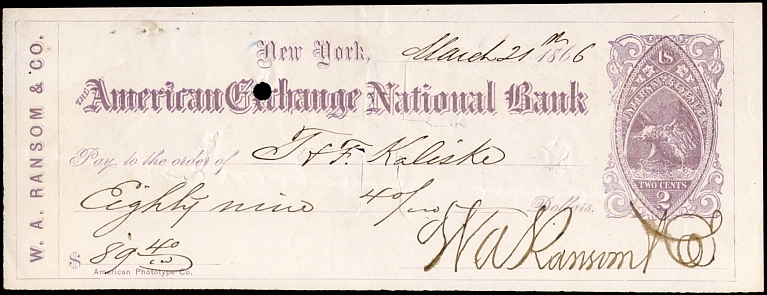 W. A. RANSOM & CO.
New York, March 21st 1866
THE American Exchange National Bank
Pay to the order of T & F. Kaliske
Eighty nine 40/100 Dollars.
$ 89 40/100
W A Ransom & Co
American Phototype Co.
US
INTERNAL REVENUE
TWO CENTS
2